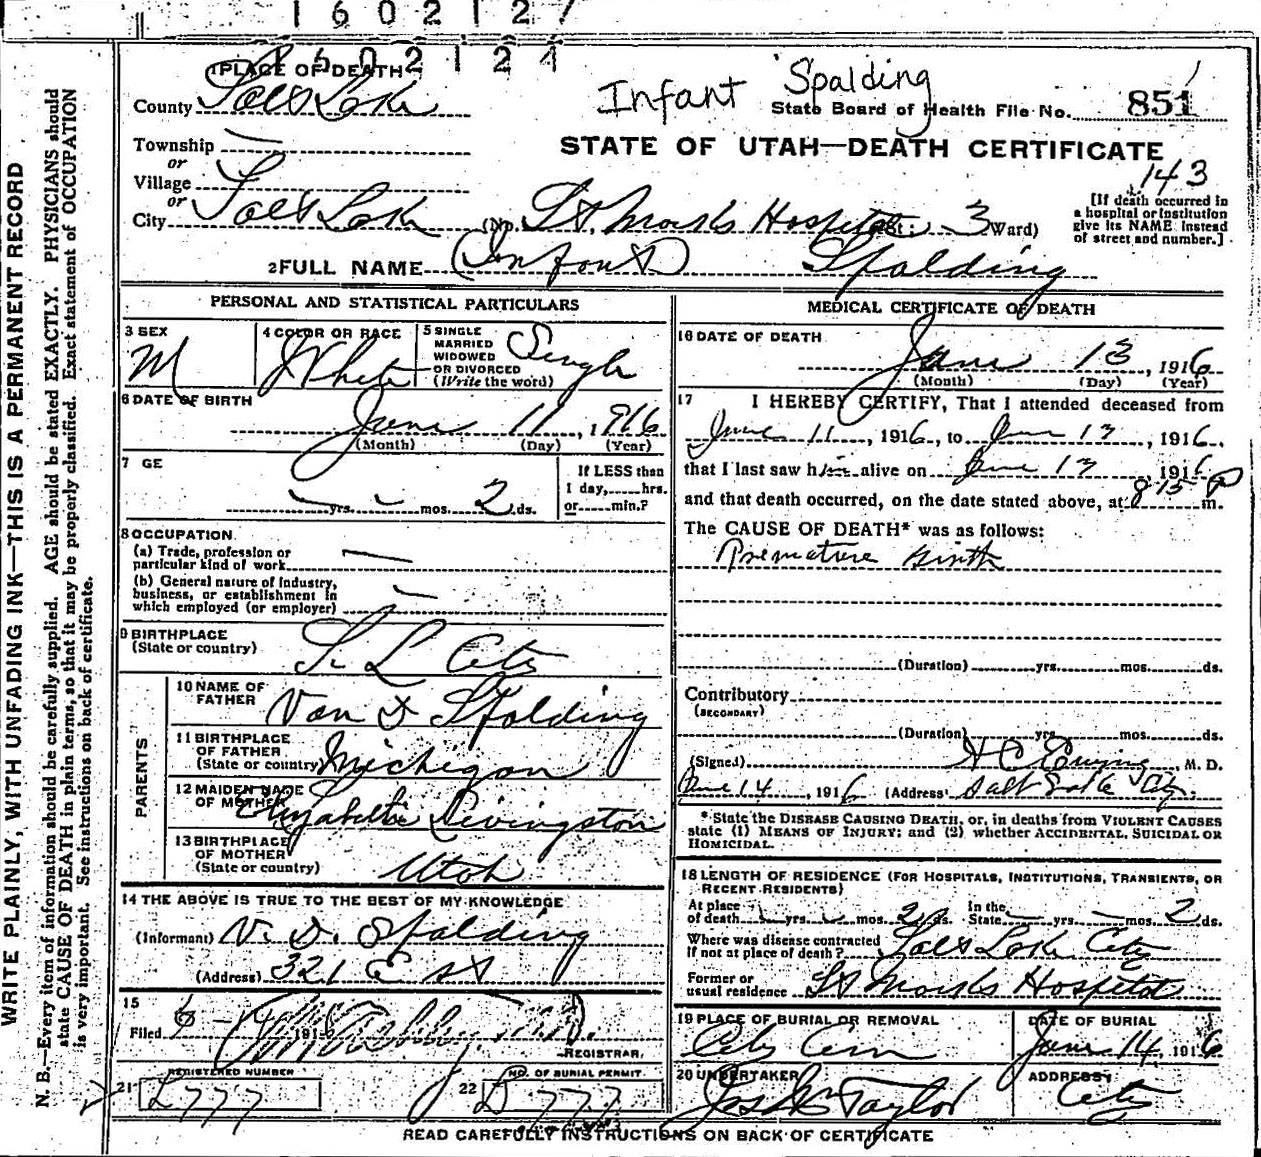 1602127
1602124
1 PLACE OF DEATH
Infant Spalding
County Salt Lake
State Board of Health File No. 851
Township —
STATE OF UTAH—DEATH CERTIFICATE
or
Village
143
or
City Salt Lake (No. St. Marks Hospital St.; 3 Ward)
[If death occurred in
a hospital or institution
give its NAME instead
of street and number.]
2 FULL NAME (Infant) Spalding
PERSONAL AND STATISTICAL PARTICULARS
3 SEX
M
4 COLOR OR RACE
White
5 SINGLE
MARRIED
WIDOWED
OR DIVORCED
(Write the word)
Single
6 DATE OF BIRTH
June 11, 1916
(Month) (Day) (Year)
7 GE
— yrs. — mos. 2 ds.
If LESS than
1 day, hrs.
or min.?
8 OCCUPATION
(a) Trade, profession or
particular kind of work —
(b) General nature of industry,
business, or establishment in
which employed (or employer) —
9 BIRTHPLACE
(State or country) S. L. City
PARENTS
10 NAME OF
FATHER Van D Spalding
11 BIRTHPLACE
OF FATHER
(State or country) Michigan
12 MAIDEN NAME
OF MOTHER Elizabeth Livingston
13 BIRTHPLACE
OF MOTHER
(State or country) Utah
14 THE ABOVE IS TRUE TO THE BEST OF MY KNOWLEDGE
(Informant) V. D. Spalding
(Address) 321 E St
15
Filed 6-14 191
REGISTRAR.
21 REGISTERED NUMBER
L777
22 NO. OF BURIAL PERMIT
D 777
MEDICAL CERTIFICATE OF DEATH
16 DATE OF DEATH
June 13, 1916
(Month) (Day) (Year)
17 I HEREBY CERTIFY, That I attended deceased from
June 11, 1916, to June 13, 1916,
that I last saw him alive on June 13 1916
and that death occurred, on the date stated above, at 8 15 P m.
The CAUSE OF DEATH* was as follows:
Premature Birth
(Duration) yrs. mos. ds.
Contributory
(SECONDARY)
(Duration) yrs. mos. ds.
(Signed) H C Ewing, M. D.
June 14, 1916 (Address) Salt Lake City.
* State the DISEASE CAUSING DEATH, or, in deaths from VIOLENT CAUSES
state (1) MEANS OF INJURY; and (2) whether ACCIDENTAL, SUICIDAL OR
HOMICIDAL.
18 LENGTH OF RESIDENCE (FOR HOSPITALS, INSTITUTIONS, TRANSIENTS, OR
RECENT RESIDENTS)
At place
of death — yrs. — mos. 2 ds.
In the
State — yrs. — mos. 2 ds.
Where was disease contracted
If not at place of death? Salt Lake City
Former or
usual residence St Marks Hospital
19 PLACE OF BURIAL OR REMOVAL
City Cem
DATE OF BURIAL
June 14, 1916
20 UNDERTAKER
Jos Wm Taylor
ADDRESS
City
READ CAREFULLY INSTRUCTIONS ON BACK OF CERTIFICATE
WRITE PLAINLY, WITH UNFADING INK—THIS IS A PERMANENT RECORD
N. B.—Every item of information should be carefully supplied. AGE should be stated EXACTLY. PHYSICIANS should
state CAUSE OF DEATH in plain terms, so that it may be properly classified. Exact statement of OCCUPATION
is very important. See instructions on back of certificate.